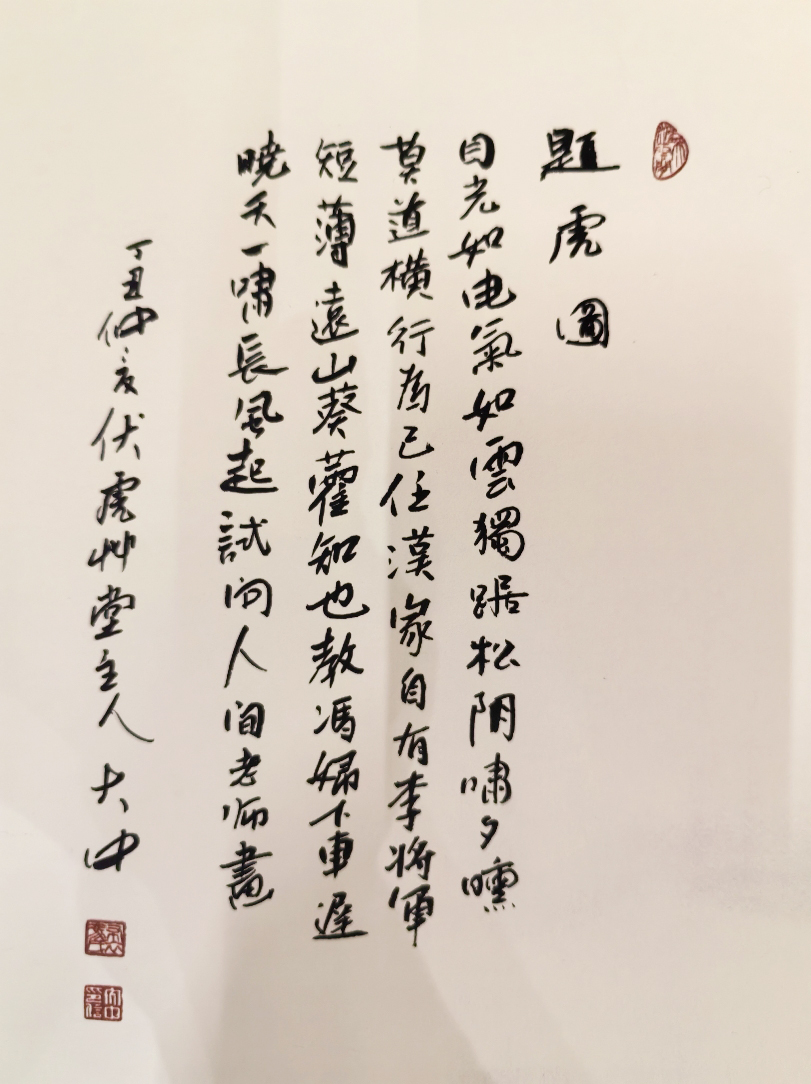 題虎圖
目光如电氣如雲獨踞松阴嘯夕曛
莫道横行為已任漢家自有李将軍
短薄遠山葵藿知也教馮婦下車遲
曉天一嘯長風起試问人间老师畫
丁丑仲夏伏虎艸堂主人大中